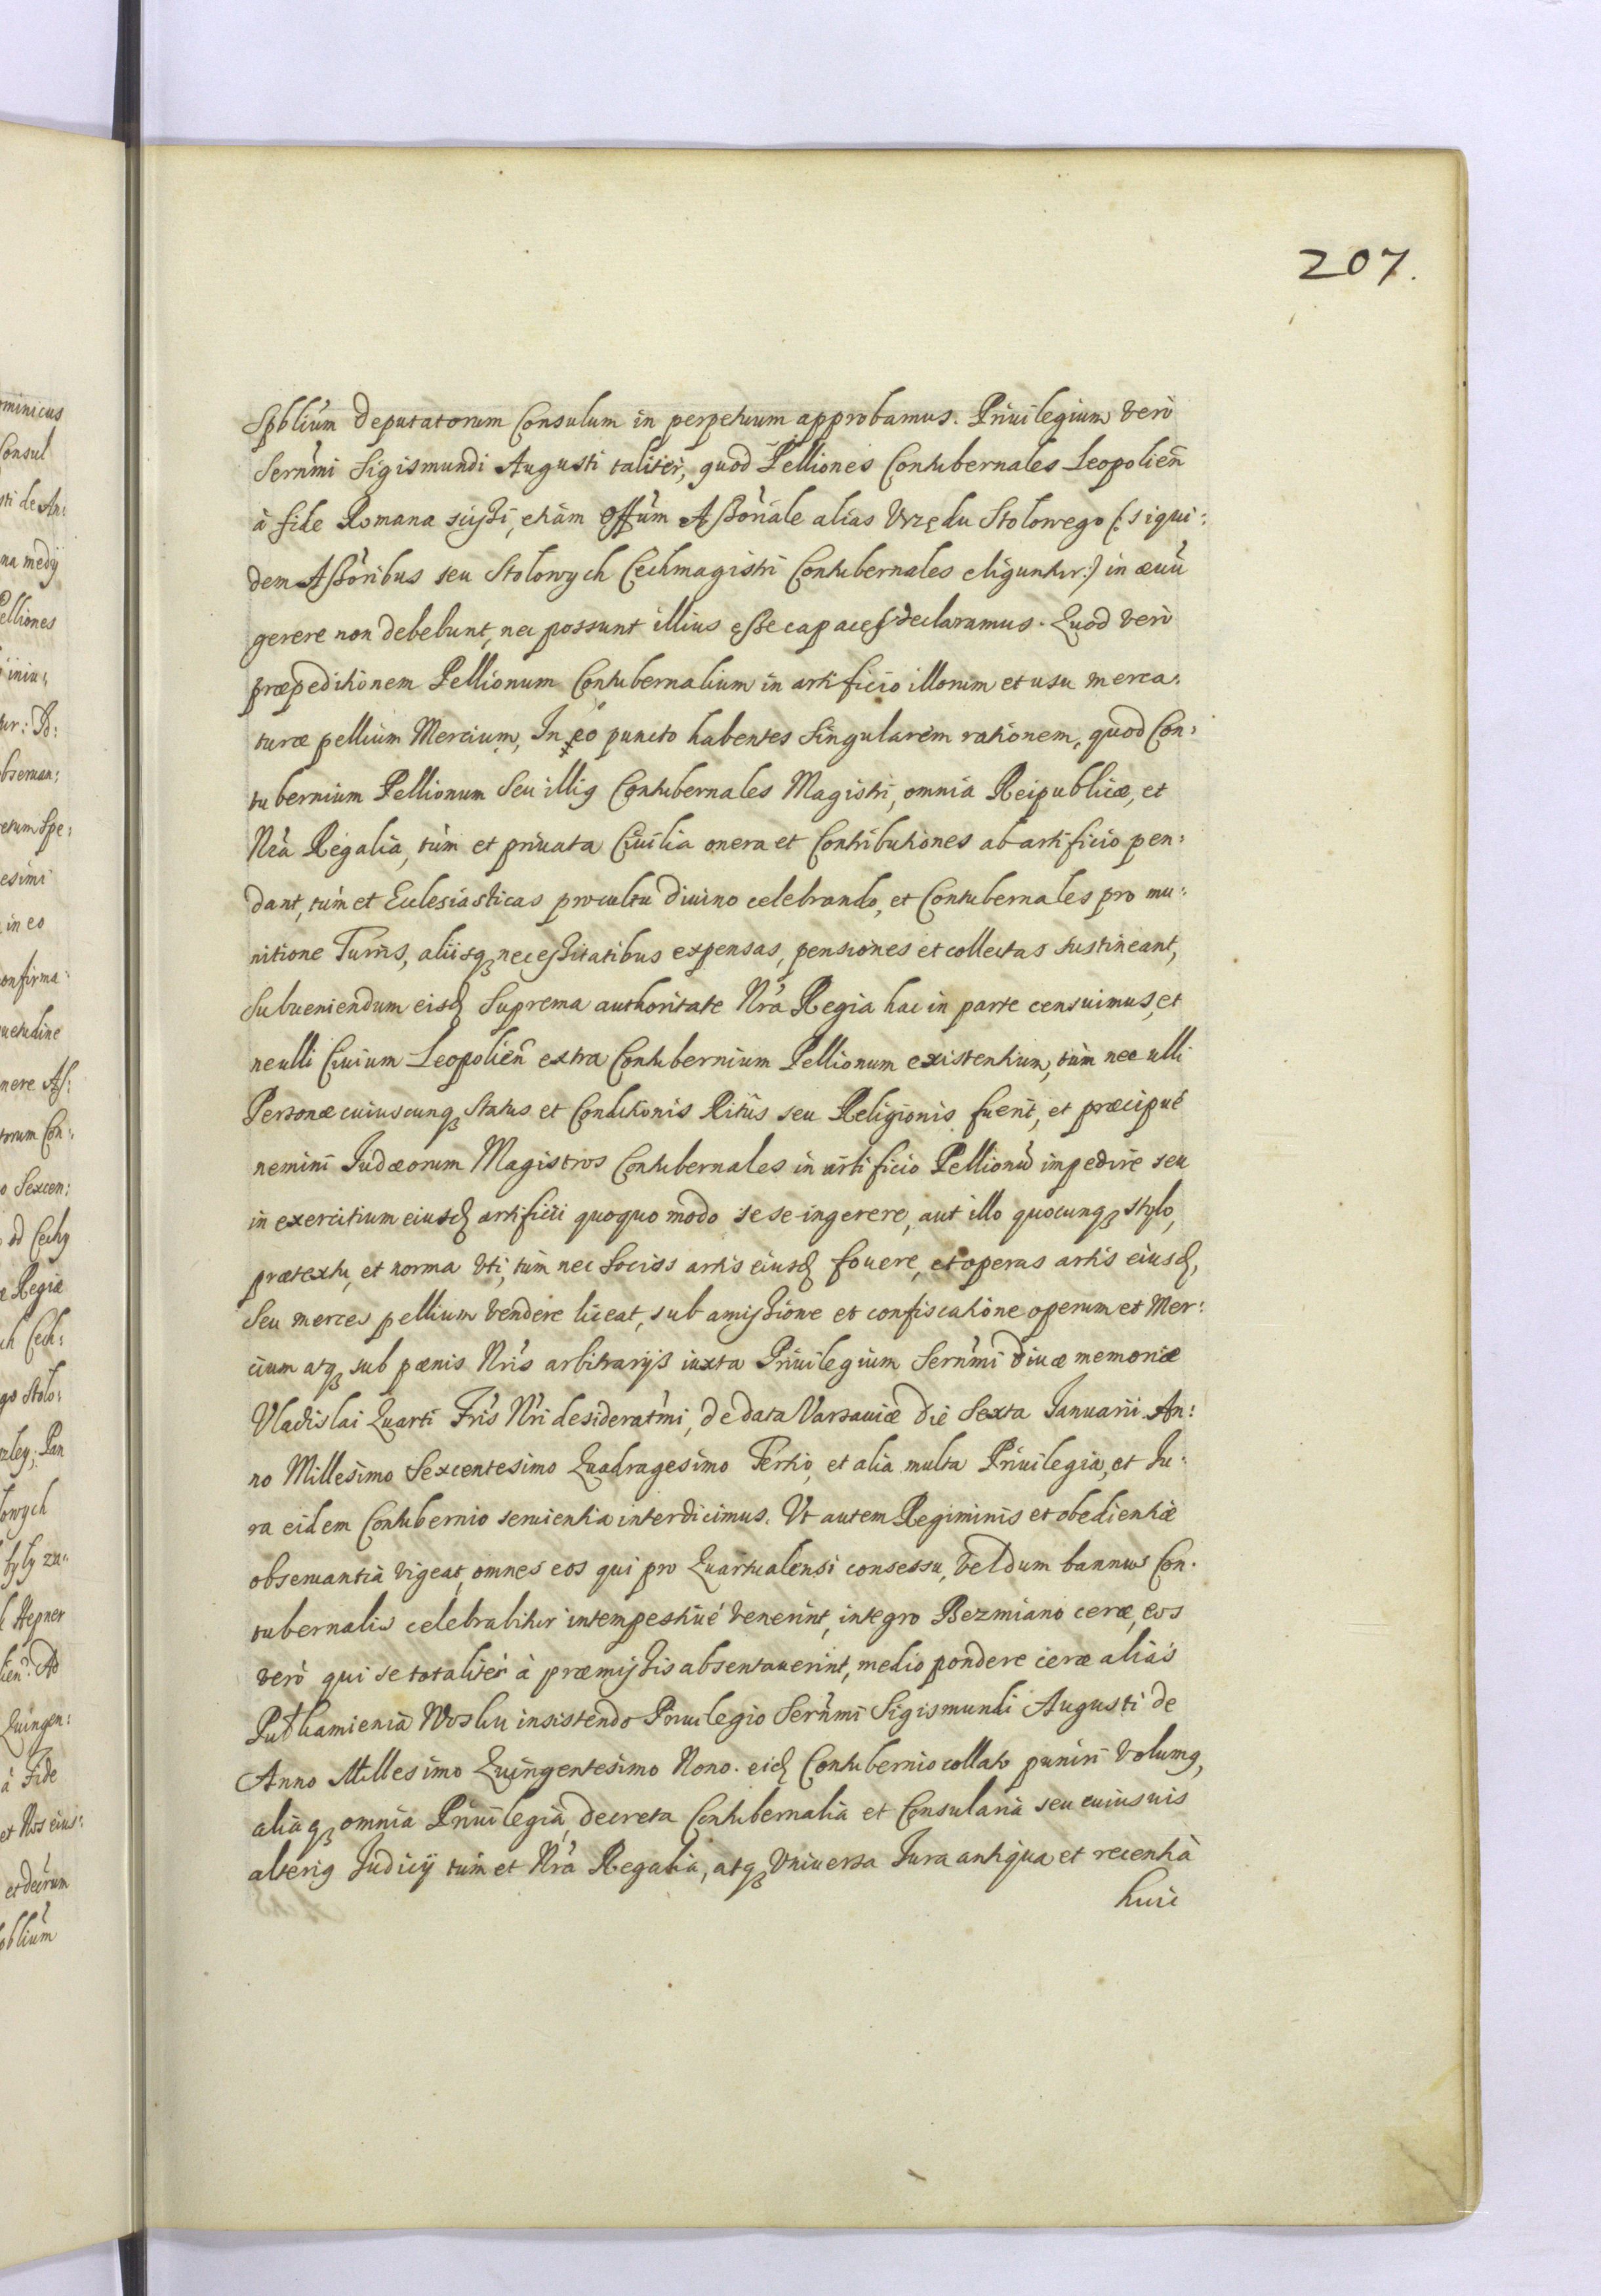 207.
Spblium deputatorum Consulum in perpetuum approbamus. Priuilegium verò
Sernmi Sigismundi Augusti taliter, quod Pelliones Contubernales Leopolien
à fide Romana scissi, etiàm Offum Assoriale alias Vrzędu Stolowego (: siqui:
dem Assoribus seu Stolowych Cechmagistri Contubernales eliguntur :) in æuũ
gerere non debebunt, nec possunt illius esse capaces declaramus. Quod verò
præpeditionem Pellionum Contubernalium in artificio illorum et usu merca:
turæ pellium Mercium, In eo puncto habentes singularem rationem, quod Con:
tubernium Pellionum Seu illig Contubernales Magistri, omnia Reipublicæ, et
Nrà Regalia, tùm et priuata Ciuilia onera et Contributiones ab artificio pen:
dant, tùm et Ecclesiasticas pro cultu diuino celebrando, et Contubernales pro mu:
nitione Turris, aliisq necessitatibus expensas, pensiones et collectas sustineant,
Subueniendum eisd Suprema authoritate Nrà Regia hac in parte censuimus, et
ne ulli Ciuium Leopolien extra Contubernium Pellionum existentium, tùm nec ulli
Personæ cuiuscunq Status et Conditionis Ritus seu Religionis fuerit, et præcipuè
nemini Judæorum Magistros Contubernales in artificio Pellionũ impedire seu
in exercitium eiusd artificii quoquo modo sese ingerere, aut illo quocunq stylo,
prætextu, et norma vti, tùm nec Socios artis eiusd fouere, et operas artis eiusd,
Seu merces pellium vendere liceat, sub amissione et confiscatione operum et Mer:
cium atq sub pænis Nris arbitrarijs iuxta Priuilegium Sernmi diuæ memoriæ
Vladislai Quarti Fris Nri desideratmi, de data Varsauiæ die Sexta Januarii An:
no Millesimo Sexcentesimo Quadragesimo Tertio, et alia multa Priuilegia, et Ju:
ra eidem Contubernio seruientia interdicimus. Vt autem Regiminis et obedientiæ
obseruantia vigeat, omnes eos qui pro Quartualensi consessu, vel dum bannus Con:
tubernalis celebrabitur intempestiuè venerint, integro Bezmiano ceræ, eos
verò qui se totaliter à præmissis absentauerint, medio pondere ceræ aliàs
Puł kamienia Wosku insistendo Priuilegio Sernmi Sigismundi Augusti de
Anno Millesimo Quingentesimo Nono. eid Contubernio collato puniri volumg,
aliaq omnia Priuilegia, decreta Contubernalia et Consularia seu cuiusuis
alterig Judicij tùm et Nrà Regalia, atq Vniuersa Jura antiqua et recentia
huic